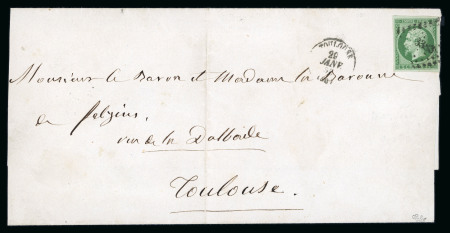 TOULOUSE
29
JANV
Monsieur le Baron et Madame la Baronne
de
rue de la Dalbade
Toulouse.